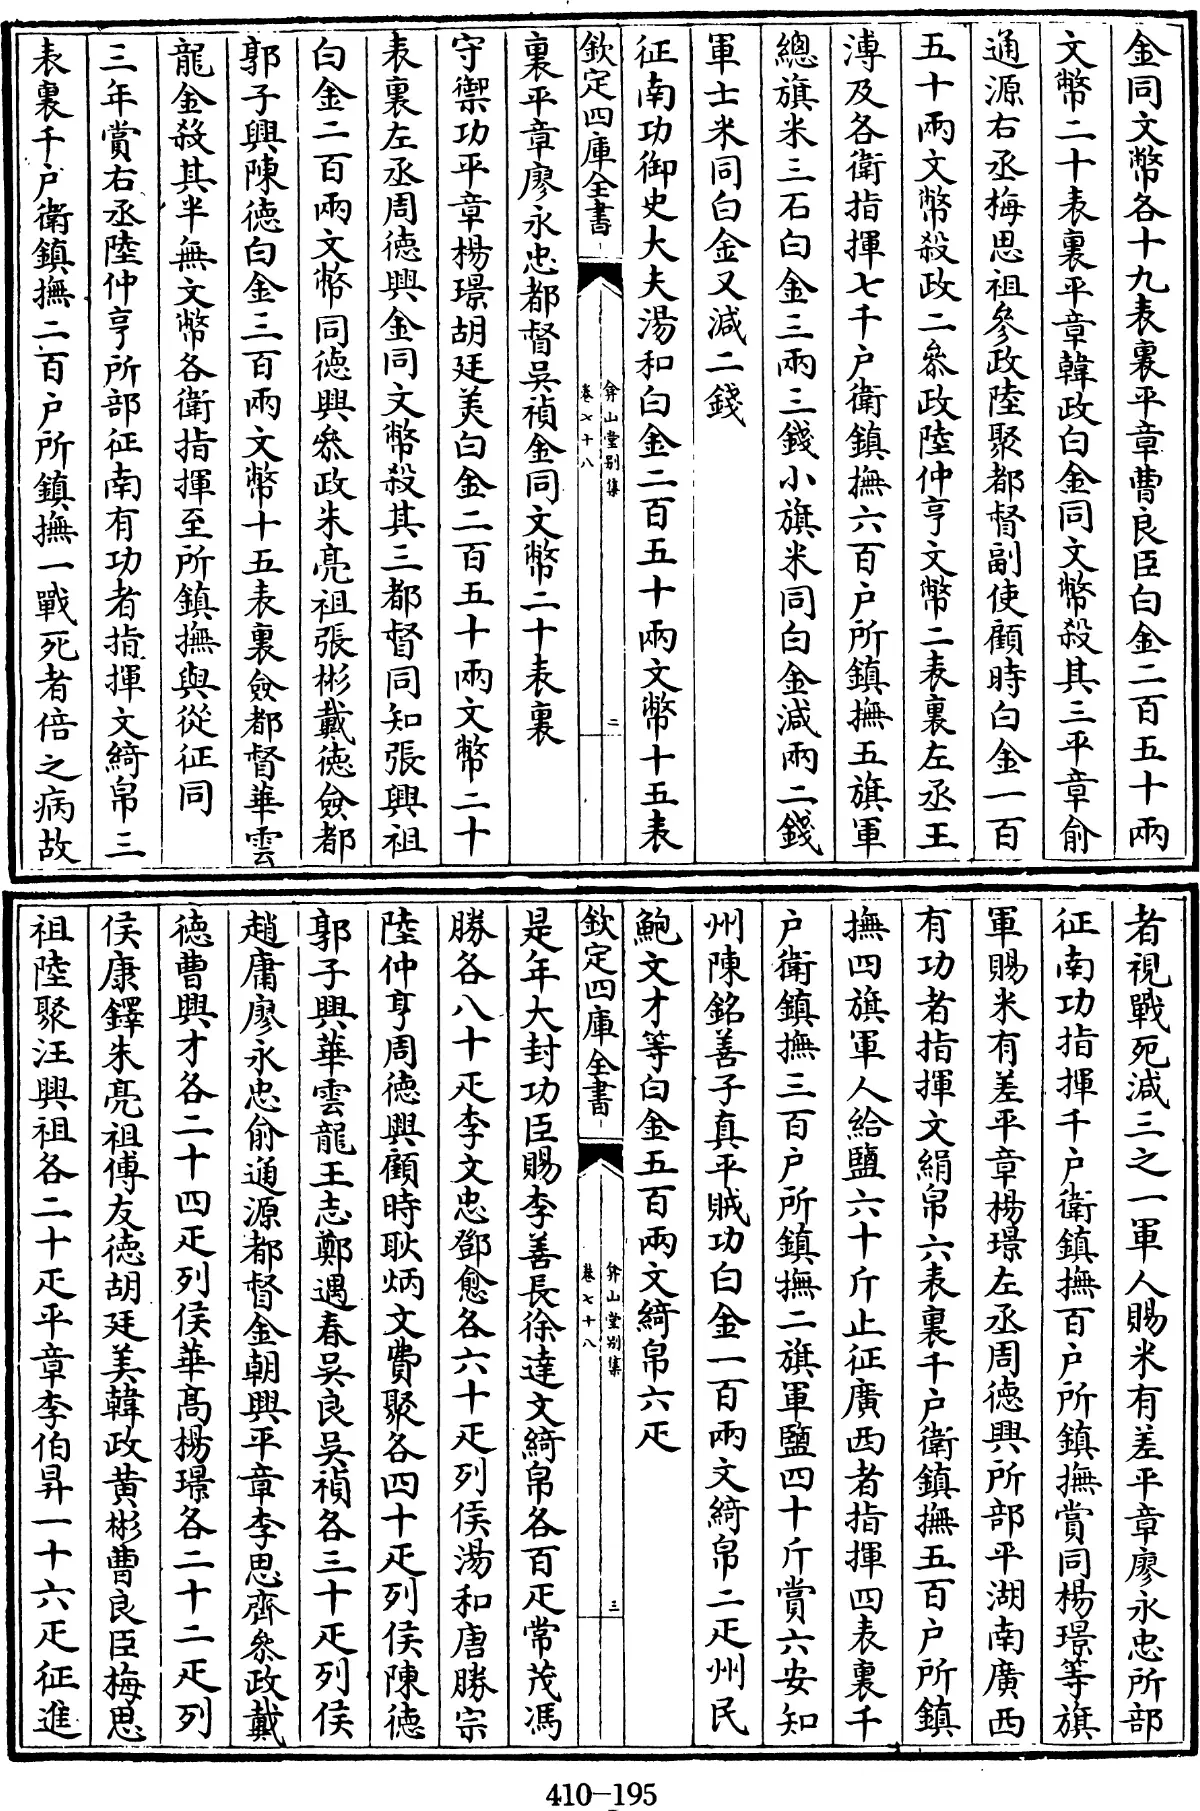 金同文幣各十九表裏平章曹良臣白金二百五十兩
文幣二十表裏平章韓政白金同文幣殺其三平章俞
通源右丞梅思祖參政陸聚都督副使顧時白金一百
五十兩文幣殺政二叅政陸仲亨文幣二表裏左丞王
溥及各衛指揮七千户衛鎮撫六百户所鎮撫五旗軍
總旗米三石白金三兩三錢小旗米同白金減兩二錢
軍士米同白金又減二錢
征南功御史大夫湯和白金二百五十兩文幣十五表
欽定四庫全書
弇山堂别集
卷七十八
二
裏平章廖永忠都督吳禎金同文幣二十表裏
守禦功平章楊璟胡廷美白金二百五十兩文幣二十
表裏左丞周徳興金同文幣殺其三都督同知張興祖
白金二百兩文幣同徳興叅政朱亮祖張彬戴徳僉都
郭子興陳徳白金三百兩文幣十五表裏僉都督華雲
龍金殺其半無文幣各衛指揮至所鎮撫與從征同
三年賞右丞陸仲亨所部征南有功者指揮文綺帛三
表裏千户衛鎮撫二百户所鎮撫一戰死者倍之病故
者視戰死減三之一軍人賜米有差平章廖永忠所部
征南功指揮千户衛鎮撫百户所鎮撫賞同楊璟等旗
軍賜米有差平章楊璟左丞周徳興所部平湖南廣西
有功者指揮文絹帛六表裏千户衛鎮撫五百户所鎮
撫四旗軍人給鹽六十斤止征廣西者指揮四表裏千
户衛鎮撫三百户所鎮撫二旗軍鹽四十斤賞六安知
州陳銘善子真平賊功白金一百兩文綺帛二疋州民
鮑文才等白金五百兩文綺帛六疋
欽定四庫全書
弇山堂别集
卷七十八
三
是年大封功臣賜李善長徐達文綺帛各百疋常茂馮
勝各八十疋李文忠鄧愈各六十疋列侯湯和唐勝宗
陸仲亨周徳興顧時耿炳文費聚各四十疋列侯陳徳
郭子興華雲龍王志鄭遇春吳良吳禎各三十疋列侯
趙庸廖永忠俞通源都督金朝興平章李思齊叅政戴
徳曹興才各二十四疋列侯華髙楊璟各二十二疋列
侯康鐸朱亮祖傅友徳胡廷美韓政黄彬曹良臣梅思
祖陸聚汪興祖各二十疋平章李伯昇一十六疋征進
410-195